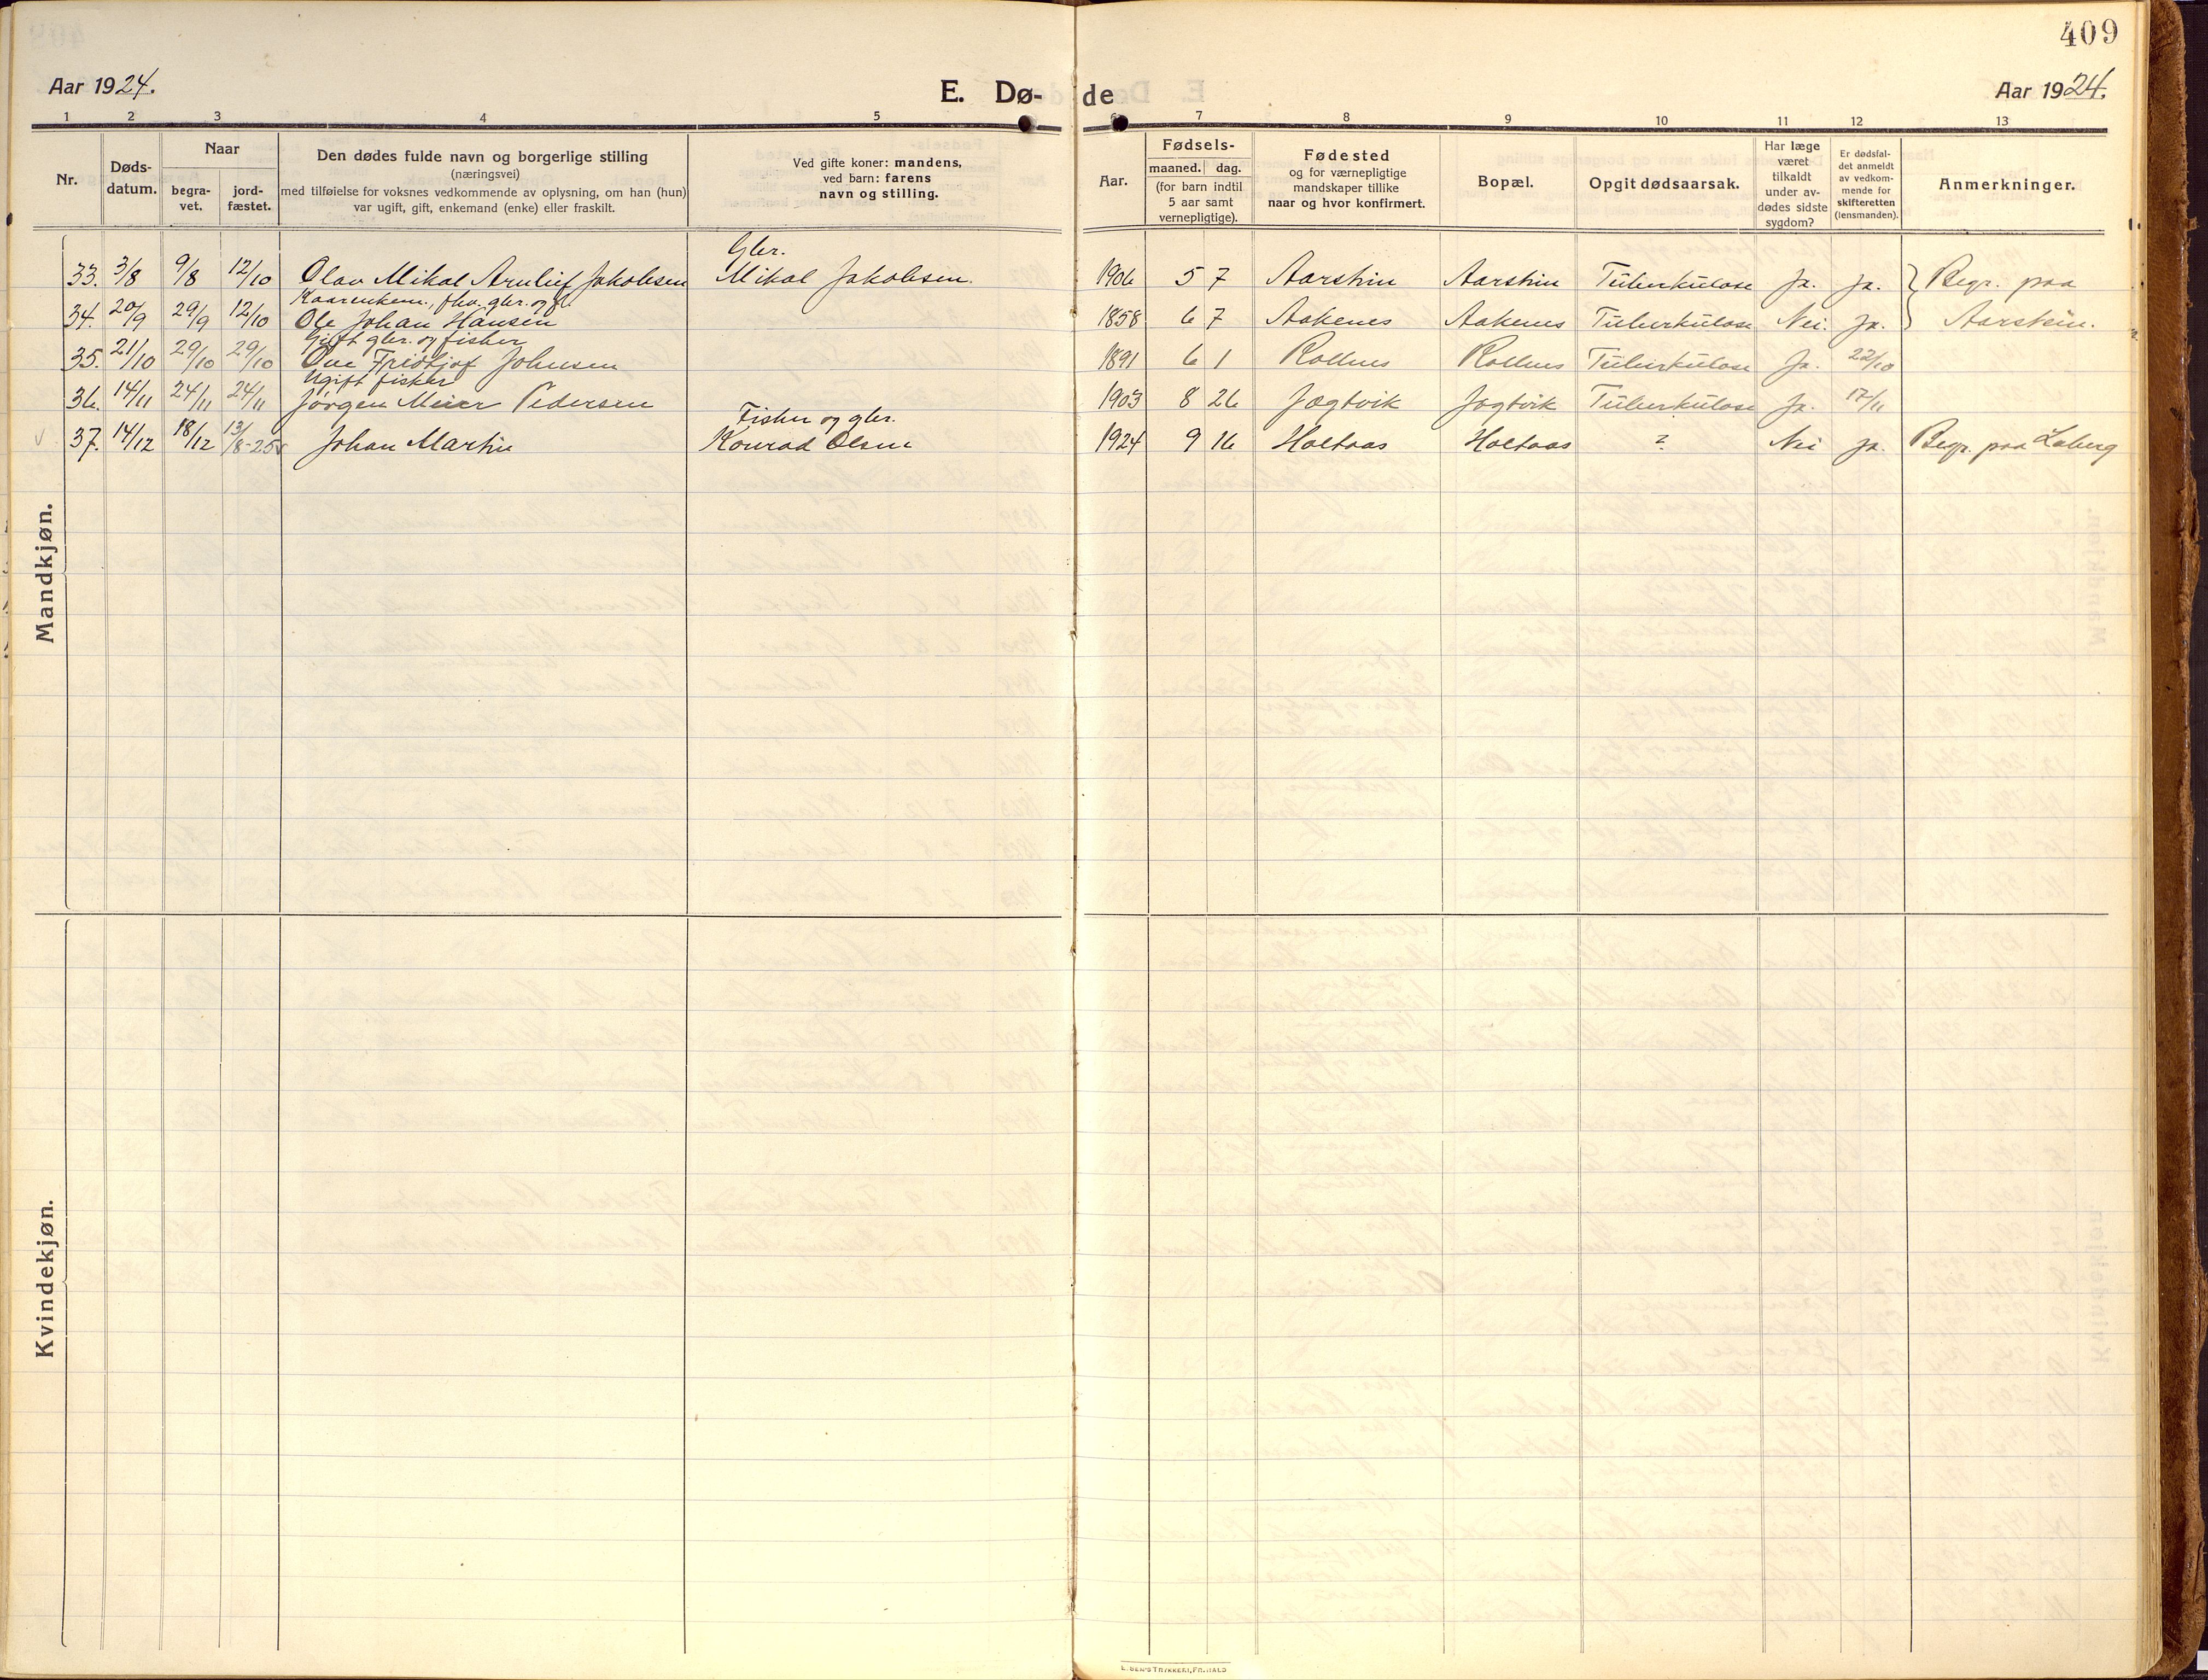 409
Aar 1924.
E. Dø-
de
Aar 1924.
1 2 3 4 5 6 7 8 9 10 11 12 13
Nr.
Døds-
datum.
Naar
begra-
vet.
jord-
fæstet.
Den dødes fulde navn og borgerlige stilling
(næringsvei)
med tilføielse for voksnes vedkommende av oplysning, om han (hun)
var ugift, gift, enkemand (enke) eller fraskilt.
Ved gifte koner: mandens,
ved barn: farens
navn og stilling.
Aar.
Fødsels-
maaned. dag.
(for barn indtil
5 aar samt
vernepligtige).
Fødested
og for værnepligtige
mandskaper tillike
naar og hvor konfirmert.
Bopæl.
Opgit dødsaarsak.
Har læge
været
tilkaldt
under av-
dødes sidste
sygdom?
Er dødsfal-
det anmeldt
av vedkom-
mende for
skifteretten
(lensmanden).
Anmerkninger.
Mandkjøn.
Gbr.
33. 3/8 9/8 12/10 Olav Mikal Arnleif Jakobsen Mikal Jakobsen. 1906 5 7 Aarstein Aarstein Tuberkulose Ja. Ja. Begr. paa
Kaarenkem., fhv. gbr. og f.
34. 20/9 29/9 12/10 Ole Johan Hansen 1858 6 7 Aakenes Aakenes Tuberkulose Nei. Ja. Aarstein.
Gift gbr. og fisker
35. 21/10 29/10 29/10 Ove Fridtjof Johnsen 1891 6 1 Rollnes Rollnes Tuberkulose Ja. 22/10
Ugift fisker
36. 14/11 24/11 24/11 Jørgen Meier Pedersen 1903 8 26 Jægtvik Jægtvik Tuberkulose Ja. 17/11
Fisker og gbr.
37. 14/12 18/12 13/8-25 Johan Martin Konrad Olsen 1924 9 16 Holtaas Holtaas ? Nei Ja. Begr. paa Laberg
Kvindekjøn.